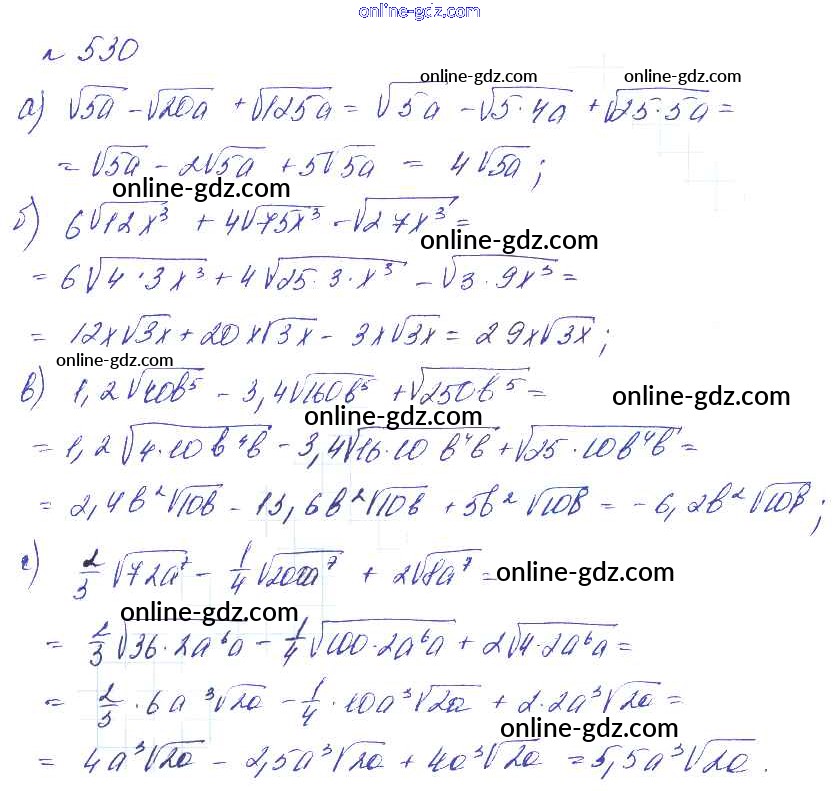 online-gdz.com
n 530
online-gdz.com online-gdz.com
а) √5a - √20a + √125a = √5a - √5·4a + √25·5a =
= √5a - 2√5a + 5√5a = 4√5a;
online-gdz.com
б) 6√12x³ + 4√75x³ - √27x³ =
online-gdz.com
= 6√4·3x³ + 4√25·3·x³ - √3·9x³ =
= 12x√3x + 20x√3x - 3x√3x = 29x√3x;
online-gdz.com
в) 1,2√40b⁵ - 3,4√160b⁵ + √250b⁵ =
online-gdz.com online-gdz.com
= 1,2√4·10b⁴b - 3,4√16·10b⁴b + √25·10b⁴b =
= 2,4b²√10b - 13,6b²√10b + 5b²√10b = -6,2b²√10b;
г) 2/3 √72a⁷ - 1/4 √200a⁷ + 2√8a⁷ = online-gdz.com
online-gdz.com
= 2/3 √36·2a⁶a - 1/4 √100·2a⁶a + 2√4·2a⁶a =
= 2/3 · 6a³√2a - 1/4 · 10a³√2a + 2·2a³√2a =
online-gdz.com
= 4a³√2a - 2,5a³√2a + 4a³√2a = 5,5a³√2a.
online-gdz.com